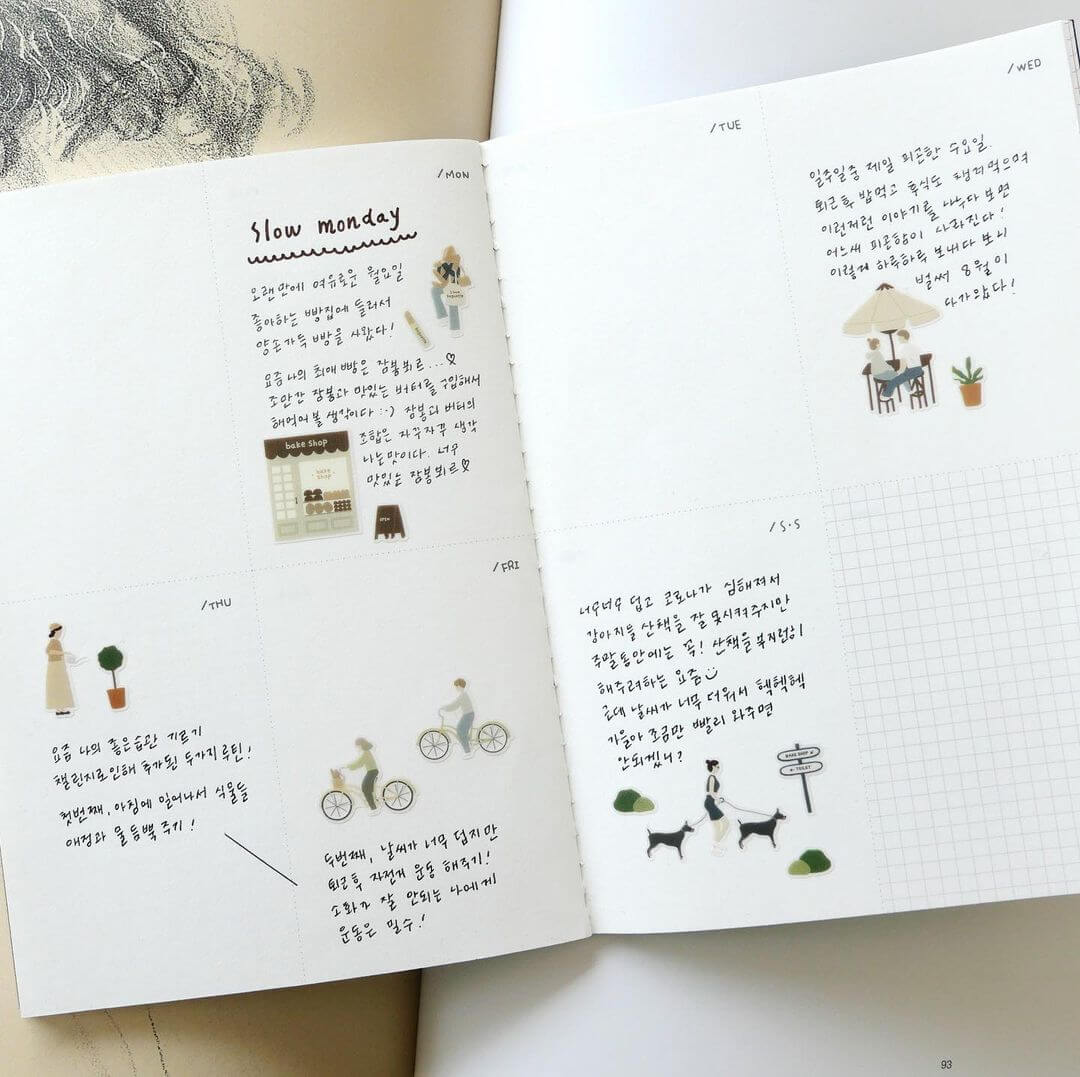 /MON
slow monday
오랜만에 여유로운 월요일
좋아하는 빵집에 들러서
양손가득 빵을 사왔다!
요즘 나의 최애 빵은 잠봉뵈르...♡
조만간 잠봉과 맛있는 버터를 구입해서
해먹어 볼 생각이다 :-) 잠봉과 버터의
조합은 자꾸자꾸 생각
나는맛이다. 너무
맛있는 잠봉뵈르♡
bake shop
bake
shop
OPEN
/TUE
/WED
일주일중 제일 피곤한 수요일.
퇴근후 밥먹고 후식도 챙겨먹으며
이런저런 이야기를 나누다 보면
어느새 피곤함이 사라진다!
이렇게 하루하루 보내다 보니
벌써 8월이
다가왔다!
/THU
요즘 나의 좋은습관 기르기
챌린지로인해 추가된 두가지 루틴!
첫번째, 아침에 일어나서 식물들
애정과 물 듬뿍 주기!
/FRI
두번째, 날씨가 너무 덥지만
퇴근후 자전거 운동 해주기!
소화가 잘 안되는 나에게
운동은 필수!
/S·S
너무너무 덥고 코로나가 심해져서
강아지들 산책을 잘 못시켜주지만
주말동안에는 꼭! 산책을부지런히
해주려하는 요즘
근데 날씨가 너무 더워서 헥헥헥
가을아 조금만 빨리 와주면
안되겠니?
BAKE SHOP
TOILET
93